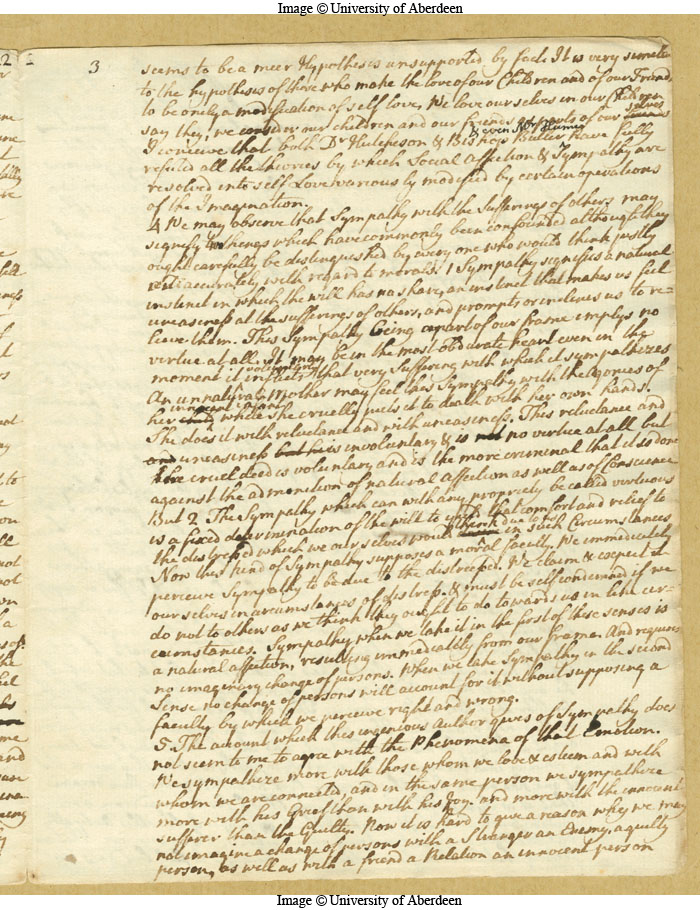 Image © University of Aberdeen
3
seems to be a meer Hypothesis unsupported by fact. It is very similar
to the hypothesis of those who make the love of our Children and of our Friends
to be onely a modification of self love. We love our selves in our Children
say they, we consider our children and our friends as parts of our selves
& even Mr Hume
I conceive that both Dr Hutcheson & Bishop Butler have fully
refuted all the theories by which Social Affection & Sympathy are
resolved into self Love variously modified by certain operations
of the Imagination.
4 We may observe that Sympathy with the Sufferings of others may
signify two things which have commonly been confounded although they
ought carefully be distinguished by every one who would think justly
and accurately with regard to morals. 1 Sympathy signifies a natural
instinct in which the will has no share, an instinct that makes us feel
uneasiness at the sufferings of others, and prompts or inclines us to re-
lieve them. This Sympathy being a part of our frame implys no
virtue at all. It may be in the most obdurate heart even in the
moment it voluntarily inflicts that very Suffering with which it sympathizes
An unnatural Mother may feel this Sympathy with the Agonies of
her innocent infant while she cruelly puts it to death with her own hands.
She does it with reluctance and with uneasiness. This reluctance and
uneasiness is involuntary & is no virtue at all but
the cruel deed is voluntary and is the more criminal that it is done
against the admonition of natural affection as well as of Conscience
But 2 The Sympathy which can with any propriety be called virtuous
is a fixed determination of the will to yield that comfort and relief to
the distressed which we our selves would think due to us in such Circumstances
Now this kind of Sympathy supposes a moral faculty. We immediately
perceive Sympathy to be due to the distressed. We claim & expect it
our selves in circumstances of distress. & must be self condemned if we
do not to others as we think they ought to do towards us in like cir-
cumstances. Sympathy when we take it in the first of these senses is
a natural affection, resulting immediately from our frame. And requires
no imaginary change of persons. When we take Sympathy in the second
Sense no change of persons will account for it without supposing a
faculty by which we perceive right and wrong.
5. The account which this ingenious Author gives of Sympathy does
not seem to me to agree with the Phenomena of that Emotion.
We sympathize more with those whom we love & esteem and with
whom we are connected, and in the same person we sympathize
more with his Grief than with his Joy. and more with the innocent
sufferer than the Guilty. Now it is hard to give a reason why we may
not imagine a change of persons with a Stranger an Enemy, a guilty
person, as well as with a friend a Relation an innocent person
Image © University of Aberdeen